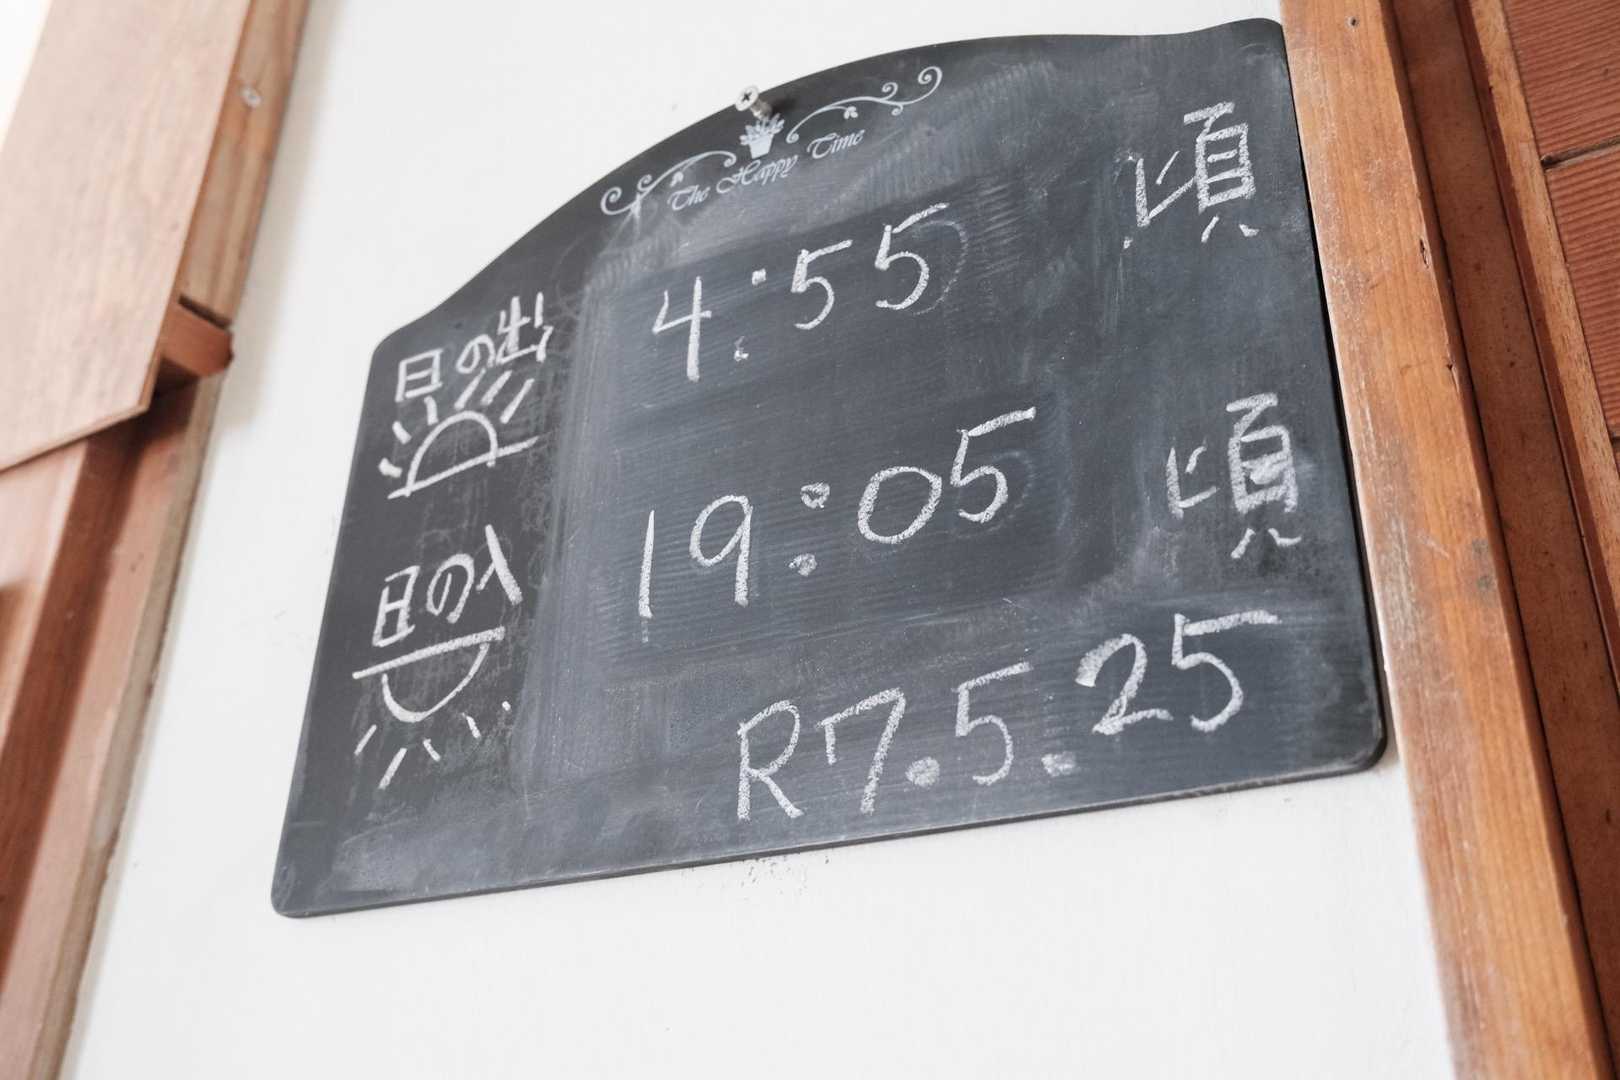 The Happy Time
日の出 4:55 頃
日の入 19:05 頃
R7.5.25